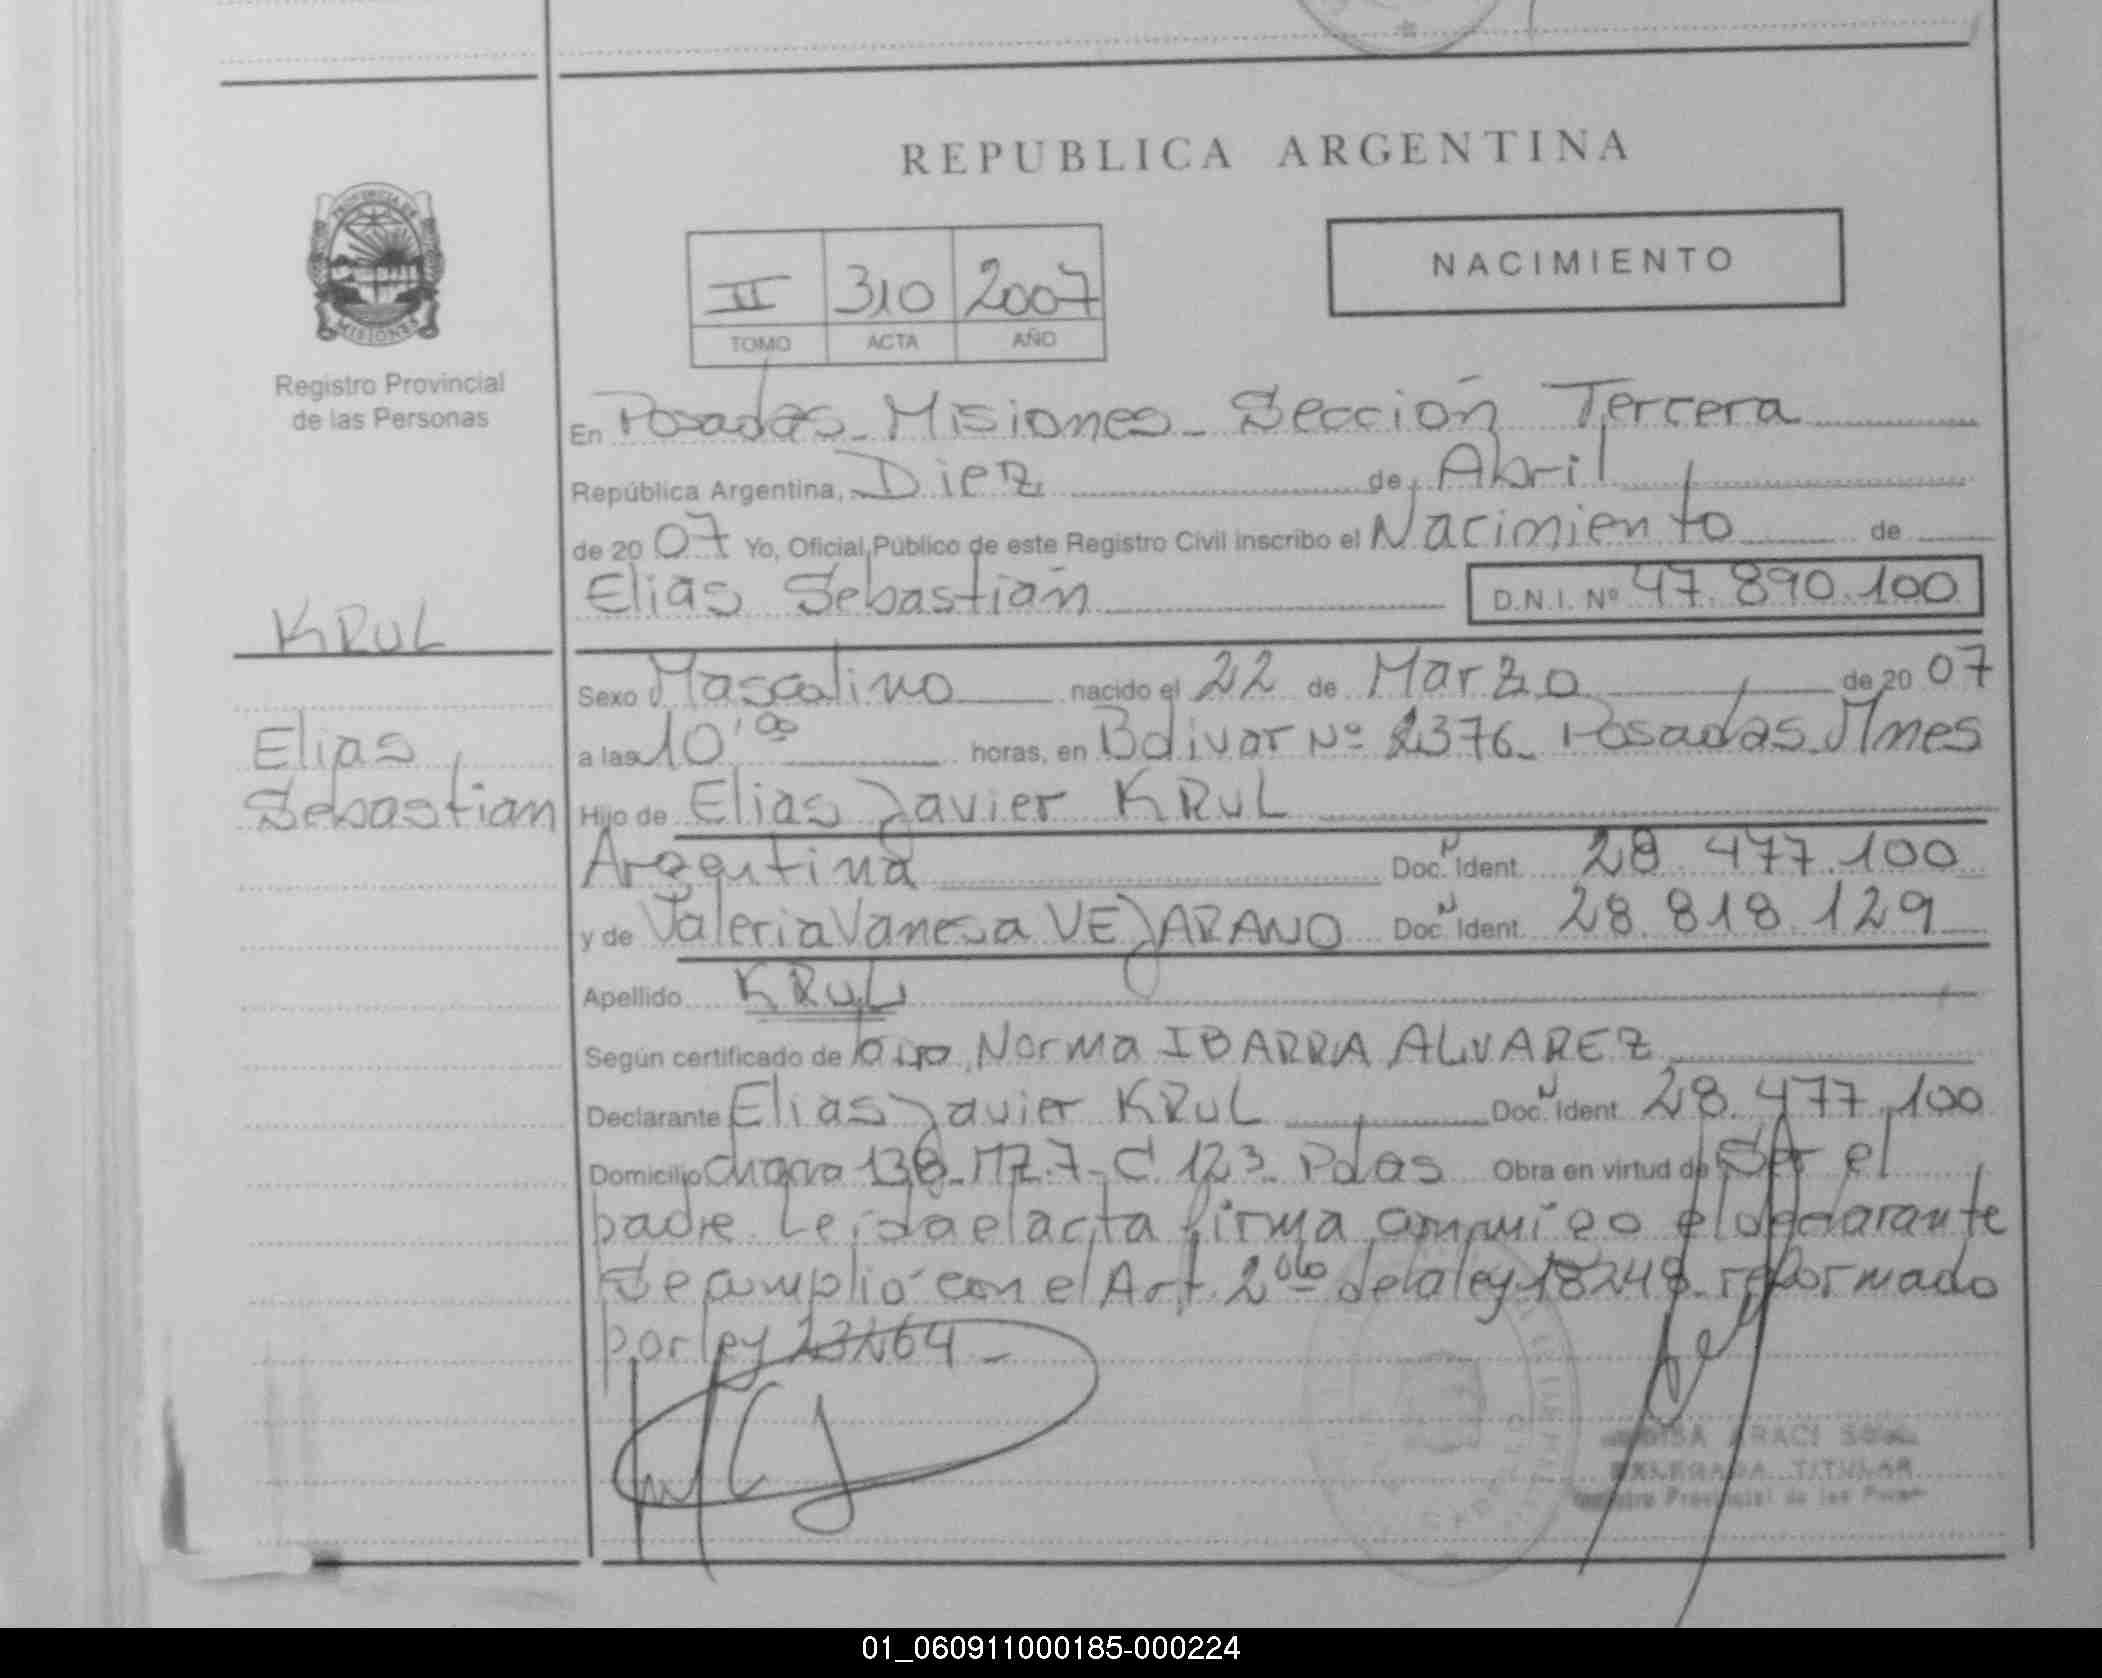 REPUBLICA ARGENTINA
PROVINCIA DE
MISIONES
Registro Provincial
de las Personas
NACIMIENTO
II 310 2007
TOMO ACTA AÑO
En Posadas - Misiones - Sección Tercera
República Argentina, Diez de Abril
de 2007 Yo, Oficial Público de este Registro Civil inscribo el Nacimiento de
Elias Sebastián D.N.I. Nº 47.890.100
KRUL
Elias
Sebastian
Sexo Masculino nacido el 22 de Marzo de 2007
a las 10'00 horas, en Bolivar Nº 2376 - Posadas. Mnes
Hijo de Elias Javier KRUL
Argentina Doc. Ident. 28.477.100
y de Valeria Vanesa VEJARANO Doc. Ident. 28.818.129
Apellido KRUL
Según certificado de Norma IBARRA ALVAREZ
Declarante Elias Javier KRUL Doc. Ident. 28.477.100
Domicilio chacra 138 - MZ. 7 - C 123 - Pdas Obra en virtud de Ser el
padre. Leida el acta firma conmigo el declarante
Se cumplió con el Art. 2do de la ley 18248 - reformado
por ley 23264 -
ARACI
DELEGADA TITULAR
Registro Provincial de las
01_060911000185-000224